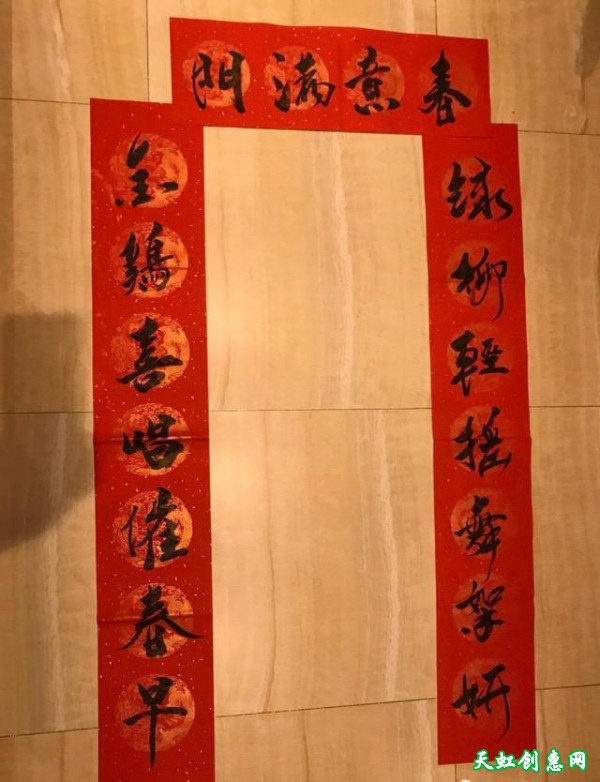 春意满門
綠柳輕搖舞絮妍
金鷄喜唱催春早
天虹创惠网